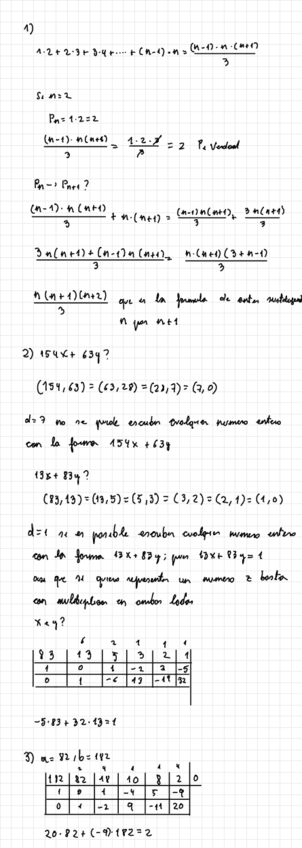 1)
1·2 + 2·3 + 3·4 + ····· + (n-1)·n = (n-1)·n·(n+1) / 3
Si n=2
Pn = 1·2 = 2
(n-1)·n(n+1) / 3 = 1·2·3 / 3 = 2 P₂ Verdad
Pn → Pn+1?
(n-1)·n(n+1) / 3 + n·(n+1) = (n-1)n(n+1) / 3 + 3n(n+1) / 3
3n(n+1) + (n-1)n(n+1) / 3 = n·(n+1)(3+n-1) / 3
n(n+1)(n+2) / 3 que es la formula de antes
n por n+1
2) 154x + 63y?
(154,63) = (63,28) = (28,7) = (7,0)
d=7 no se puede escribir cualquier numero entero
con la forma 154x + 63y
13x + 83y?
(83,13) = (13,5) = (5,3) = (3,2) = (2,1) = (1,0)
d=1 si es posible escribir cualquier numero entero
con la forma 13x + 83y; pues 13x + 83y = 1
asi que si quiero representar un numero z basta
con multiplicar en ambos lados
x e y?
6 2 1 1 1
83 13 5 3 2 1
1 0 1 -2 3 -5
0 1 -6 13 -19 32
-5·83 + 32·13 = 1
3) a=82, b=182
182 82 18 10 8 2 0
1 0 1 -4 5 -9
0 1 -2 9 -11 20
20·82 + (-9)·182 = 2